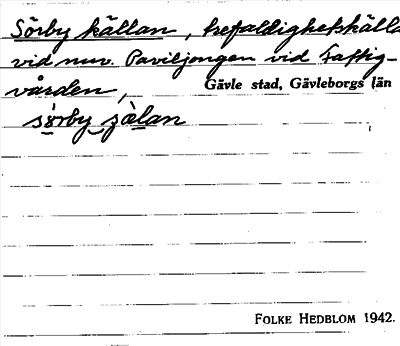 Sörby källan, trefaldighetskälla
vid nuv. Paviljongen vid Fattig-
vården,
Gävle stad, Gävleborgs län
sörby zälan
FOLKE HEDBLOM 1942.